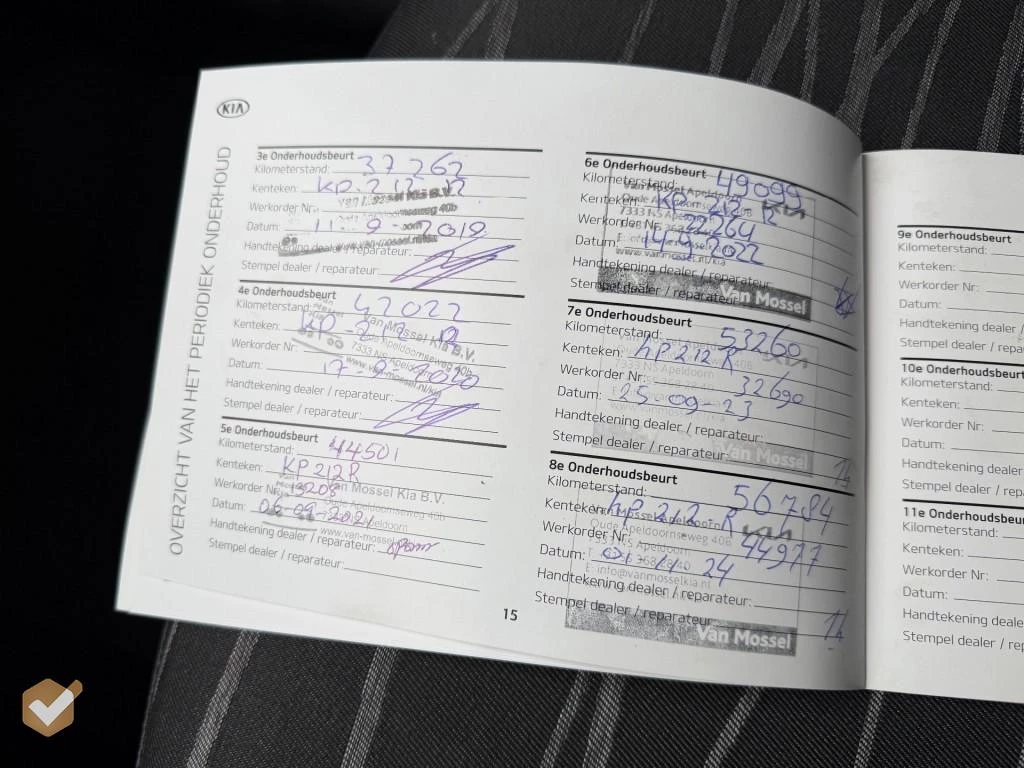 KIA
OVERZICHT VAN HET PERIODIEK ONDERHOUD
3e Onderhoudsbeurt
Kilometerstand: 37262
Kenteken: KP.212
Werkorder Nr:
Datum: 11-9-2019
Handtekening dealer / reparateur:
Stempel dealer / reparateur:
4e Onderhoudsbeurt
Kilometerstand: 42022
Kenteken:
Van Mossel Kia B.V.
Oude Apeldoornseweg 40b
Werkorder Nr:
7333 NS Apeldoorn
www.van-mossel.nl/kia
Datum: 17-9-2020
Handtekening dealer / reparateur:
Stempel dealer / reparateur:
5e Onderhoudsbeurt
Kilometerstand: 44501
Kenteken: KP212R
Werkorder Nr: 13208
Van Mossel Kia B.V.
Oude Apeldoornseweg 40b
Datum: 06-09-2021
Apeldoorn
Handtekening dealer / reparateur:
Stempel dealer / reparateur:
15
6e Onderhoudsbeurt
Kilometerstand: 49099
Van Mossel Apeldoorn
Kenteken: KP 212 R
Oude Apeldoornseweg 40B
7333 NS Apeldoorn
Werkorder Nr: 22264
Datum:
www.vanmosselkia.nl/kia
Handtekening dealer / reparateur:
Stempel dealer / reparateur:
Van Mossel
7e Onderhoudsbeurt
Kilometerstand: 53260
Kenteken: KP212 R
Werkorder Nr: 32690
Datum: 25-09-23
Handtekening dealer / reparateur:
Stempel dealer / reparateur:
Van Mossel
8e Onderhoudsbeurt
Kilometerstand: 56784
Kenteken: KP 212 R
Van Mossel Apeldoorn
KIA
Oude Apeldoornseweg 40B
Werkorder Nr: 44977
7333 NS Apeldoorn
Datum: 01 11 24
E: info@vanmosselkia.nl
Handtekening dealer / reparateur:
Stempel dealer / reparateur:
Van Mossel
9e Onderhoudsbeurt
Kilometerstand:
Kenteken:
Werkorder Nr:
Datum:
Handtekening dealer /
Stempel dealer / rep
10e Onderhoudsbeurt
Kilometerstand:
Kenteken:
Werkorder Nr:
Datum:
Handtekening deale
Stempel dealer / rep
11e Onderhoudsbeur
Kilometerstand:
Kenteken:
Werkorder Nr:
Datum:
Handtekening deale
Stempel dealer / re